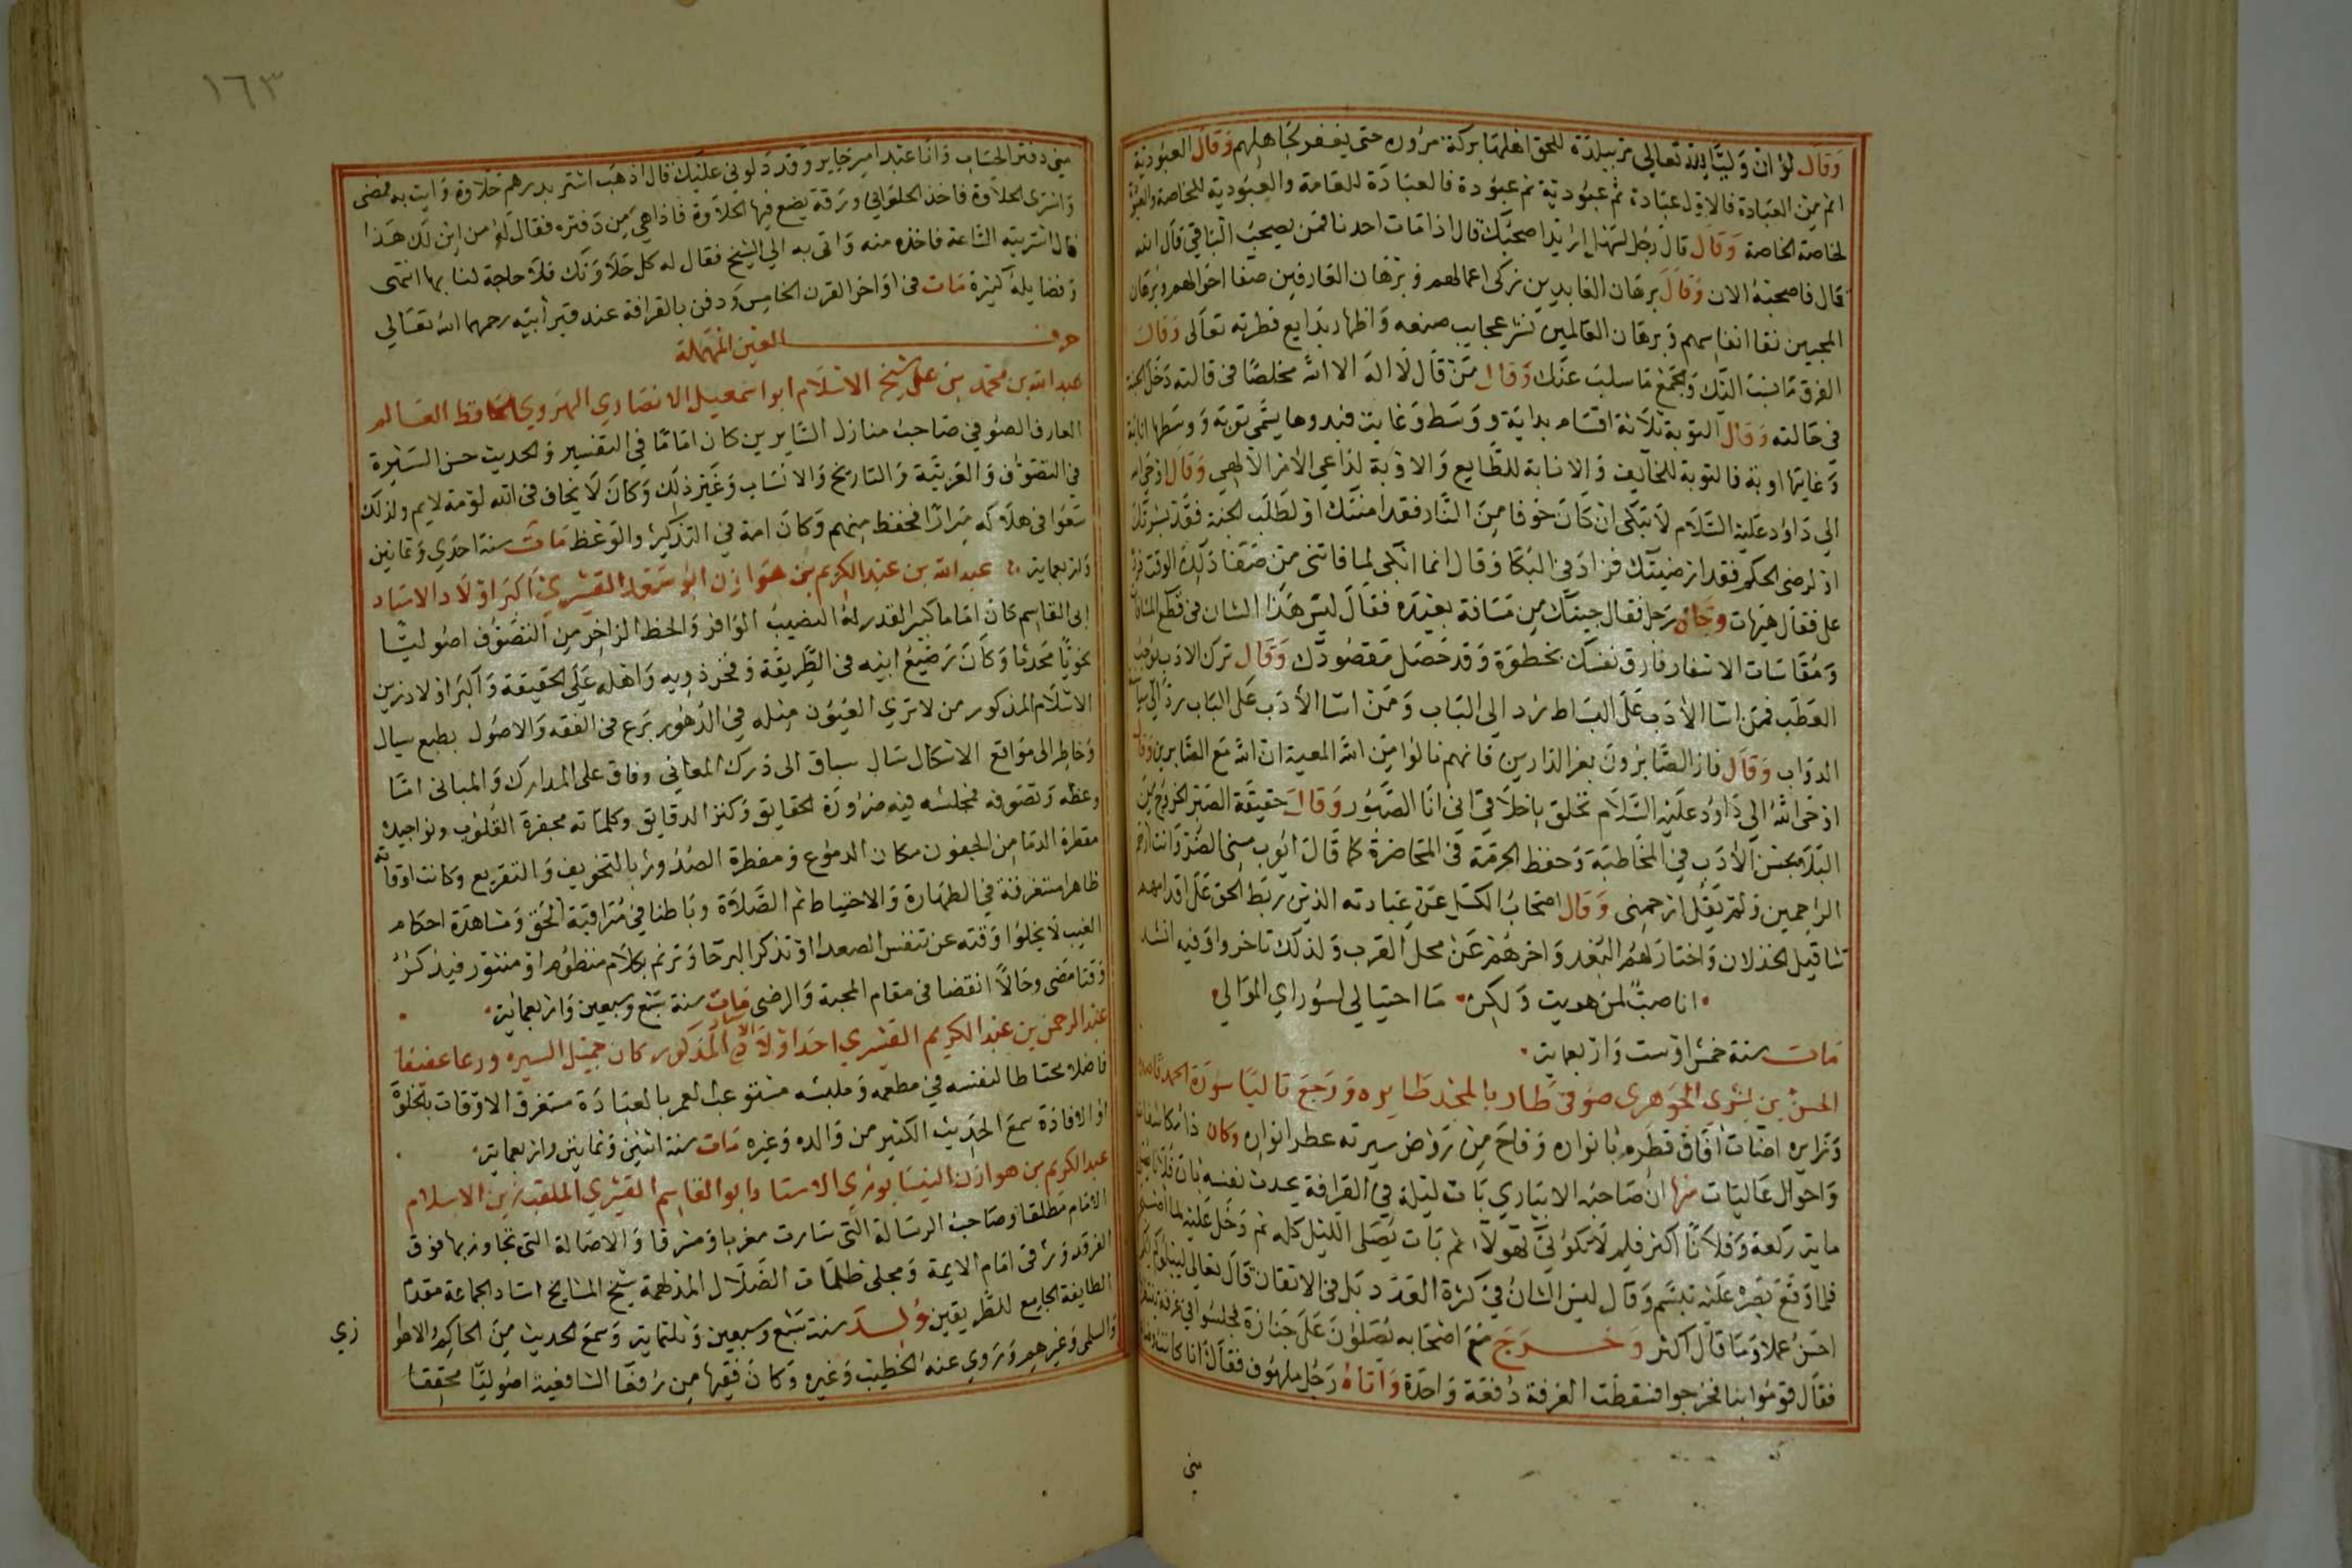 وقال لو ان وليا لله تعالى مر ببلدة للحق اهلها بركة مروره حتى يغفر لجاهلهم وقال العبودية
اتم من العبادة فالاول عبادة ثم عبودية ثم عبودة فالعبادة للعامة والعبودية للخاصة والعبودة
لخاصة الخاصة وقال قال رجل لسهل اريد اصحبك قال اذا مات احدنا فمن يصحب الباقي قال الله
قال فاصحبه الان وقال برهان العابدين تزكى اعمالهم وبرهان العارفين صفا احوالهم وبرهان
المحبين نفا انفاسهم وبرهان العالمين نشر عجايب صنعه واظهار بدايع فطرته تعالى وقال
الفرق ما نسب اليك والجمع ما سلب عنك وقال من قال لا اله الا الله مخلصا في قالته دخل الجنة
في حالته وقال التوبة ثلاثة اقسام بداية ووسط وغاية فبدوها يسمى توبة ووسطها انابة
وغايتها اوبة فالتوبة للخايف والانابة للطايع والاوبة لداعي الامر الالهي وقال اوحى الله
الى داود عليه السلام لا تبكى ان كان خوفا من النار فقد امنتك او لطلب الجنة فقد بشرتك
او لرضى الحكم فقد ارضيتك فزاد في البكا وقال انما ابكى لما فاتني من صفا ذلك الوقت فرده
على فقال هيهات وجاه رجل فقال جيتك من مسافة بعيده فقال ليس هذا الشان في قطع المسافات
ومقاسات الاسفار فارق نفسك بخطوة وقد حصل مقصودك وقال ترك الادب يوجب
العطب فمن اسا الادب على البساط رد الى الباب ومن اسا الادب على الباب رد الى سياسة
الدواب وقال فاز الصابرون بعز الدارين فانهم نالوا من الله المعية ان الله مع الصابرين وقال
اوحى الله الى داود عليه السلام تخلق باخلاقي اني انا الصبور وقال حقيقة الصبر الخروج من
البلا بحسن الادب في المخاطبة وحفظ الحرمة في المحاضرة كما قال ايوب مسني الضر وانت ارحم
الراحمين ولم يقل ارحمنى وقال اصحاب الكسل عن عبادته الذين ربط الحق على اقدامهم
تثاقيل الخذلان واختار لهم البعد واخرهم عن محل القرب ولذلك تاخروا وفيه انشد
انا صب لمن هويت ولكن ما احتيالي لسوراي الموالي
مات سنة خمس او ست واربعماية
الحسن بن بشرى الجوهري صوفي طار بالمجد طايره ورجع تاليا سورة الحمد قاصده
وزايره اضات افاق قطره بانواره وفاح من روض سيرته عطر انواره وكان ذا مكاشفات
واحوال عاليات منها ان صاحبه الابياري بات ليلة في القرافة يحدث نفسه بان فلانا يصلي
ماية ركعة وفلانا اكثر فلم لا تكوني كهولا ثم بات يصلى الليل كله ثم دخل عليه لما اصبح
فلما وقع بصره عليه تبسم وقال ليس الشان في كثرة العدد بل في الاتقان قال تعالى ليبلوكم ايكم
احسن عملا وما قال اكثر وخرج مع اصحابه يصلون على جنازة فجلسوا في غرفة
فقال قوموا بنا فخرجوا فسقطت الغرفة دفعة واحدة واتاه رجل ملهوف فقال انا كاتب
مني
١٦٣
مني دفتر الحساب وانا عند امير جاير وقد دلوني عليك قال اذهب اشتر بدرهم حلاوة وايت به فمضى
واشترى الحلاوة فاخذ الحلواني ورقة يضع فيها الحلاوة فاذا هي من دفتره فقال له من اين لك هذا
قال اشتريته الساعة فاخذه منه واتى به الى الشيخ فقال له كل حلاوتك فلا حاجة لنا بها انتهى
وفضايله كثيرة مات في اواخر القرن الخامس ودفن بالقرافة عند قبر ابيه رحمهما الله تعالى
حرف العين المهملة
عبد الله بن محمد بن على شيخ الاسلام ابو اسمعيل الانصاري الهروي الحافظ العالم
العارف الصوفي صاحب منازل السايرين كان اماما في التفسير والحديث حسن السيرة
في التصوف والعربية والتاريخ والانساب وغير ذلك وكان لا يخاف في الله لومة لايم ولذلك
سعوا في هلاكه مرارا فحفظ منهم وكان امة في التذكير والوعظ مات سنة احدى وثمانين
واربعماية عبد الله بن عبد الكريم بن هوازن ابو سعد القشيري اكبر اولاد الاستاد
ابى القاسم كان اماما كبير القدر له النصيب الوافر والحظ الزاخر من التصوف اصوليا
نحويا محدثا وكان رضيع ابيه في الطريقة وفخر ذويه واهله على الحقيقة واكبر اولاد زين
الاسلام المذكور من لا ترى العيون مثله في الدهور برع في الفقه والاصول بطبع سيال
وخاطر الى مواقع الاشكال سباق الى درك المعاني وفاق على المدارك والمبانى اما
وعظه وتصوفه فمجلسه فيه الحقايق وكنز الدقايق وكلماته محيرة القلوب ونواجيده
مقطرة الدما من الجفون مكان الدموع ومفطرة الصدور بالتخويف والتقريع وكانت اوقاته
ظاهرا مستغرقة في الطهارة والاحتياط ثم الصلاة وباطنا في مراقبة الحق ومشاهدة احكام
الغيب لا يخلو وقته عن تنفس الصعدا او تذكر البرحا وترنم بكلام منظوم او منثور فيذكر
وقتا مضى وحالا انقضا في مقام المحبة والرضى مات سنة سبع وسبعين واربعماية
عبد الرحمن بن عبد الكريم القشيري احد اولاد الاستاد المذكور كان جميل السيره ورعا عفيفا
فاضلا محتاطا لنفسه في مطعمه وملبسه مستوعب العمر بالعبادة مستغرق الاوقات بالخلوة
او الافادة سمع الحديث الكثير من والده وغيره مات سنة اثنين وثمانين واربعماية
عبد الكريم بن هوازن النيسابوري الاستاد ابو القاسم القشيري الملقب زين الاسلام
الامام مطلقا وصاحب الرسالة التى سارت مغربا ومشرقا والاصالة التى تجاوز بها فوق
الفرقد ورقى امام الايمة ومجلى ظلمات الضلال المدلهمة شيخ المشايخ استاد الجماعة مقدم
الطايفة الجامع للطريقين ولد سنة سبع وسبعين وثلثماية وسمع الحديث من الحاكم
والسلمى وغيرهم وروى عنه الخطيب وغيره وكان فقيها من رفقا الشافعية اصوليا محققا